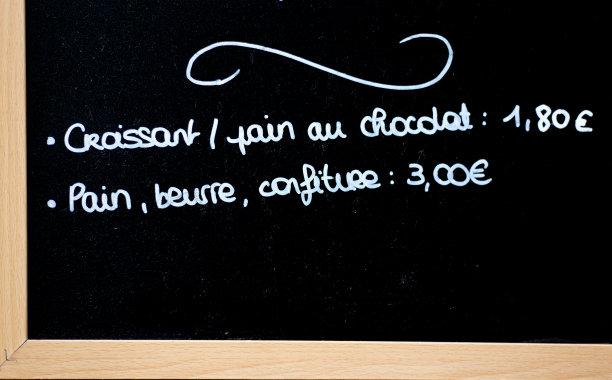 • Croissant / pain au chocolat : 1,80 €
• Pain, beurre, confiture : 3,00€